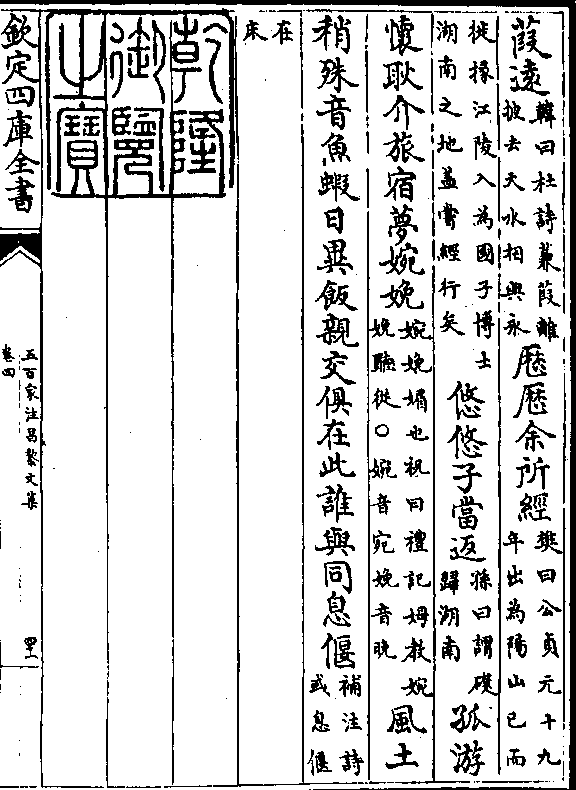 葭遠韓曰杜詩蒹葭離披去天水相與永歴歴余所經樊曰公貞元十九年出為陽山已而
徙掾江陵入為國子博士湖南之地蓋嘗經行矣悠悠子當返孫曰謂礎歸湖南孤游
懷耿介旅宿夢婉娩婉娩媚也祝曰禮記姆教婉娩聽從○婉音宛娩音晚風土
稍殊音魚蝦日異飯親交俱在此誰與同息偃補注詩或息偃
在床
乾隆
御覽
之寶
欽定四庫全書
五百家注昌黎文集
卷四